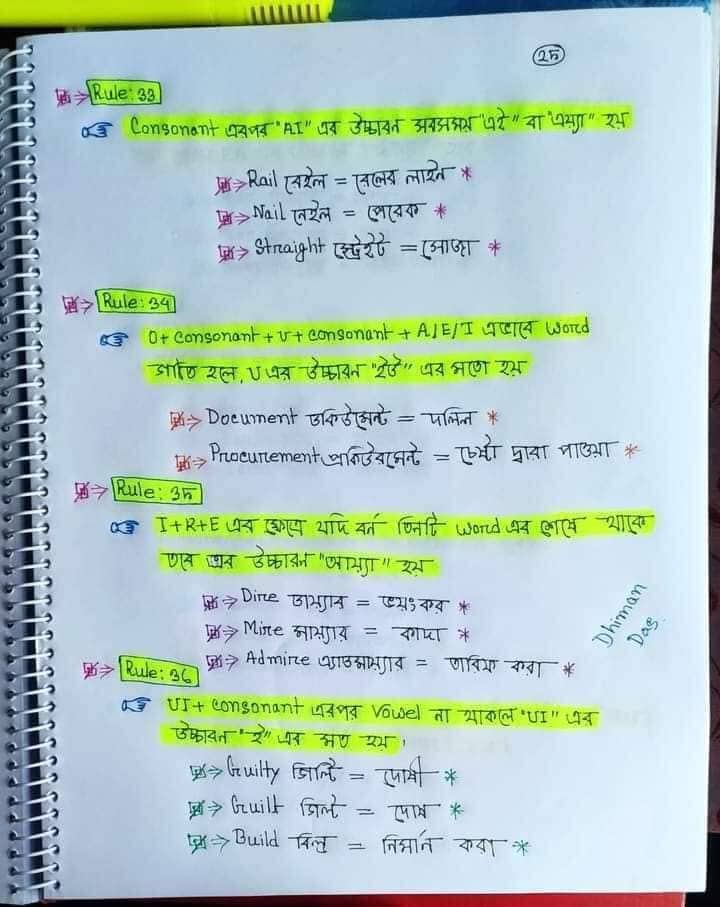 ২৮
Rule: 33
Consonant এরপর "AI" এর উচ্চারন সবসময় "এই" বা "এয়্যা" হয়
Rail রেইল = রেলের লাইন *
Nail নেইল = পেরেক *
Straight স্ট্রেইট = সোজা *
Rule: 34
O+ consonant + U + consonant + A/E/I এভাবে word
গঠিত হলে, U এর উচ্চারন "ইউ" এর মতো হয়
Document ডকিউমেন্ট = দলিল *
Procurement প্রকিউরমেন্ট = চেষ্টা দ্বারা পাওয়া *
Rule: 35
I+R+E এর ক্ষেত্রে যদি বর্ন তিনটি word এর শেষে থাকে
তবে এর উচ্চারন "আয়্যা" হয়
Dire ডায়্যার = ভয়ংকর *
Mire মায়্যার = কাদা *
Admire এ্যাডমায়্যার = তারিফ করা *
Dhiman
Das.
Rule: 36
UI + consonant এরপর vowel না থাকলে "UI" এর
উচ্চারন "ই" এর মত হয়।
Guilty গিল্টি = দোষী *
Guilt গিল্ট = দোষ *
Build বিল্ড = নির্মান করা *